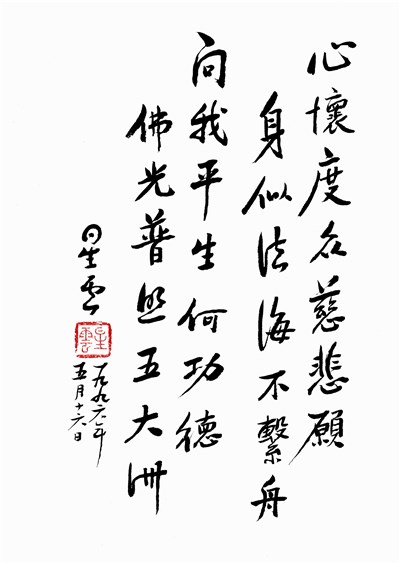 心懷度眾慈悲願
身似法海不繫舟
問我平生何功德
佛光普照五大洲
星雲
星雲
一九九六年
五月十六日